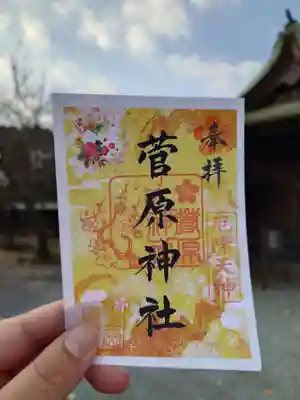 奉拝
菅原神社
菅原